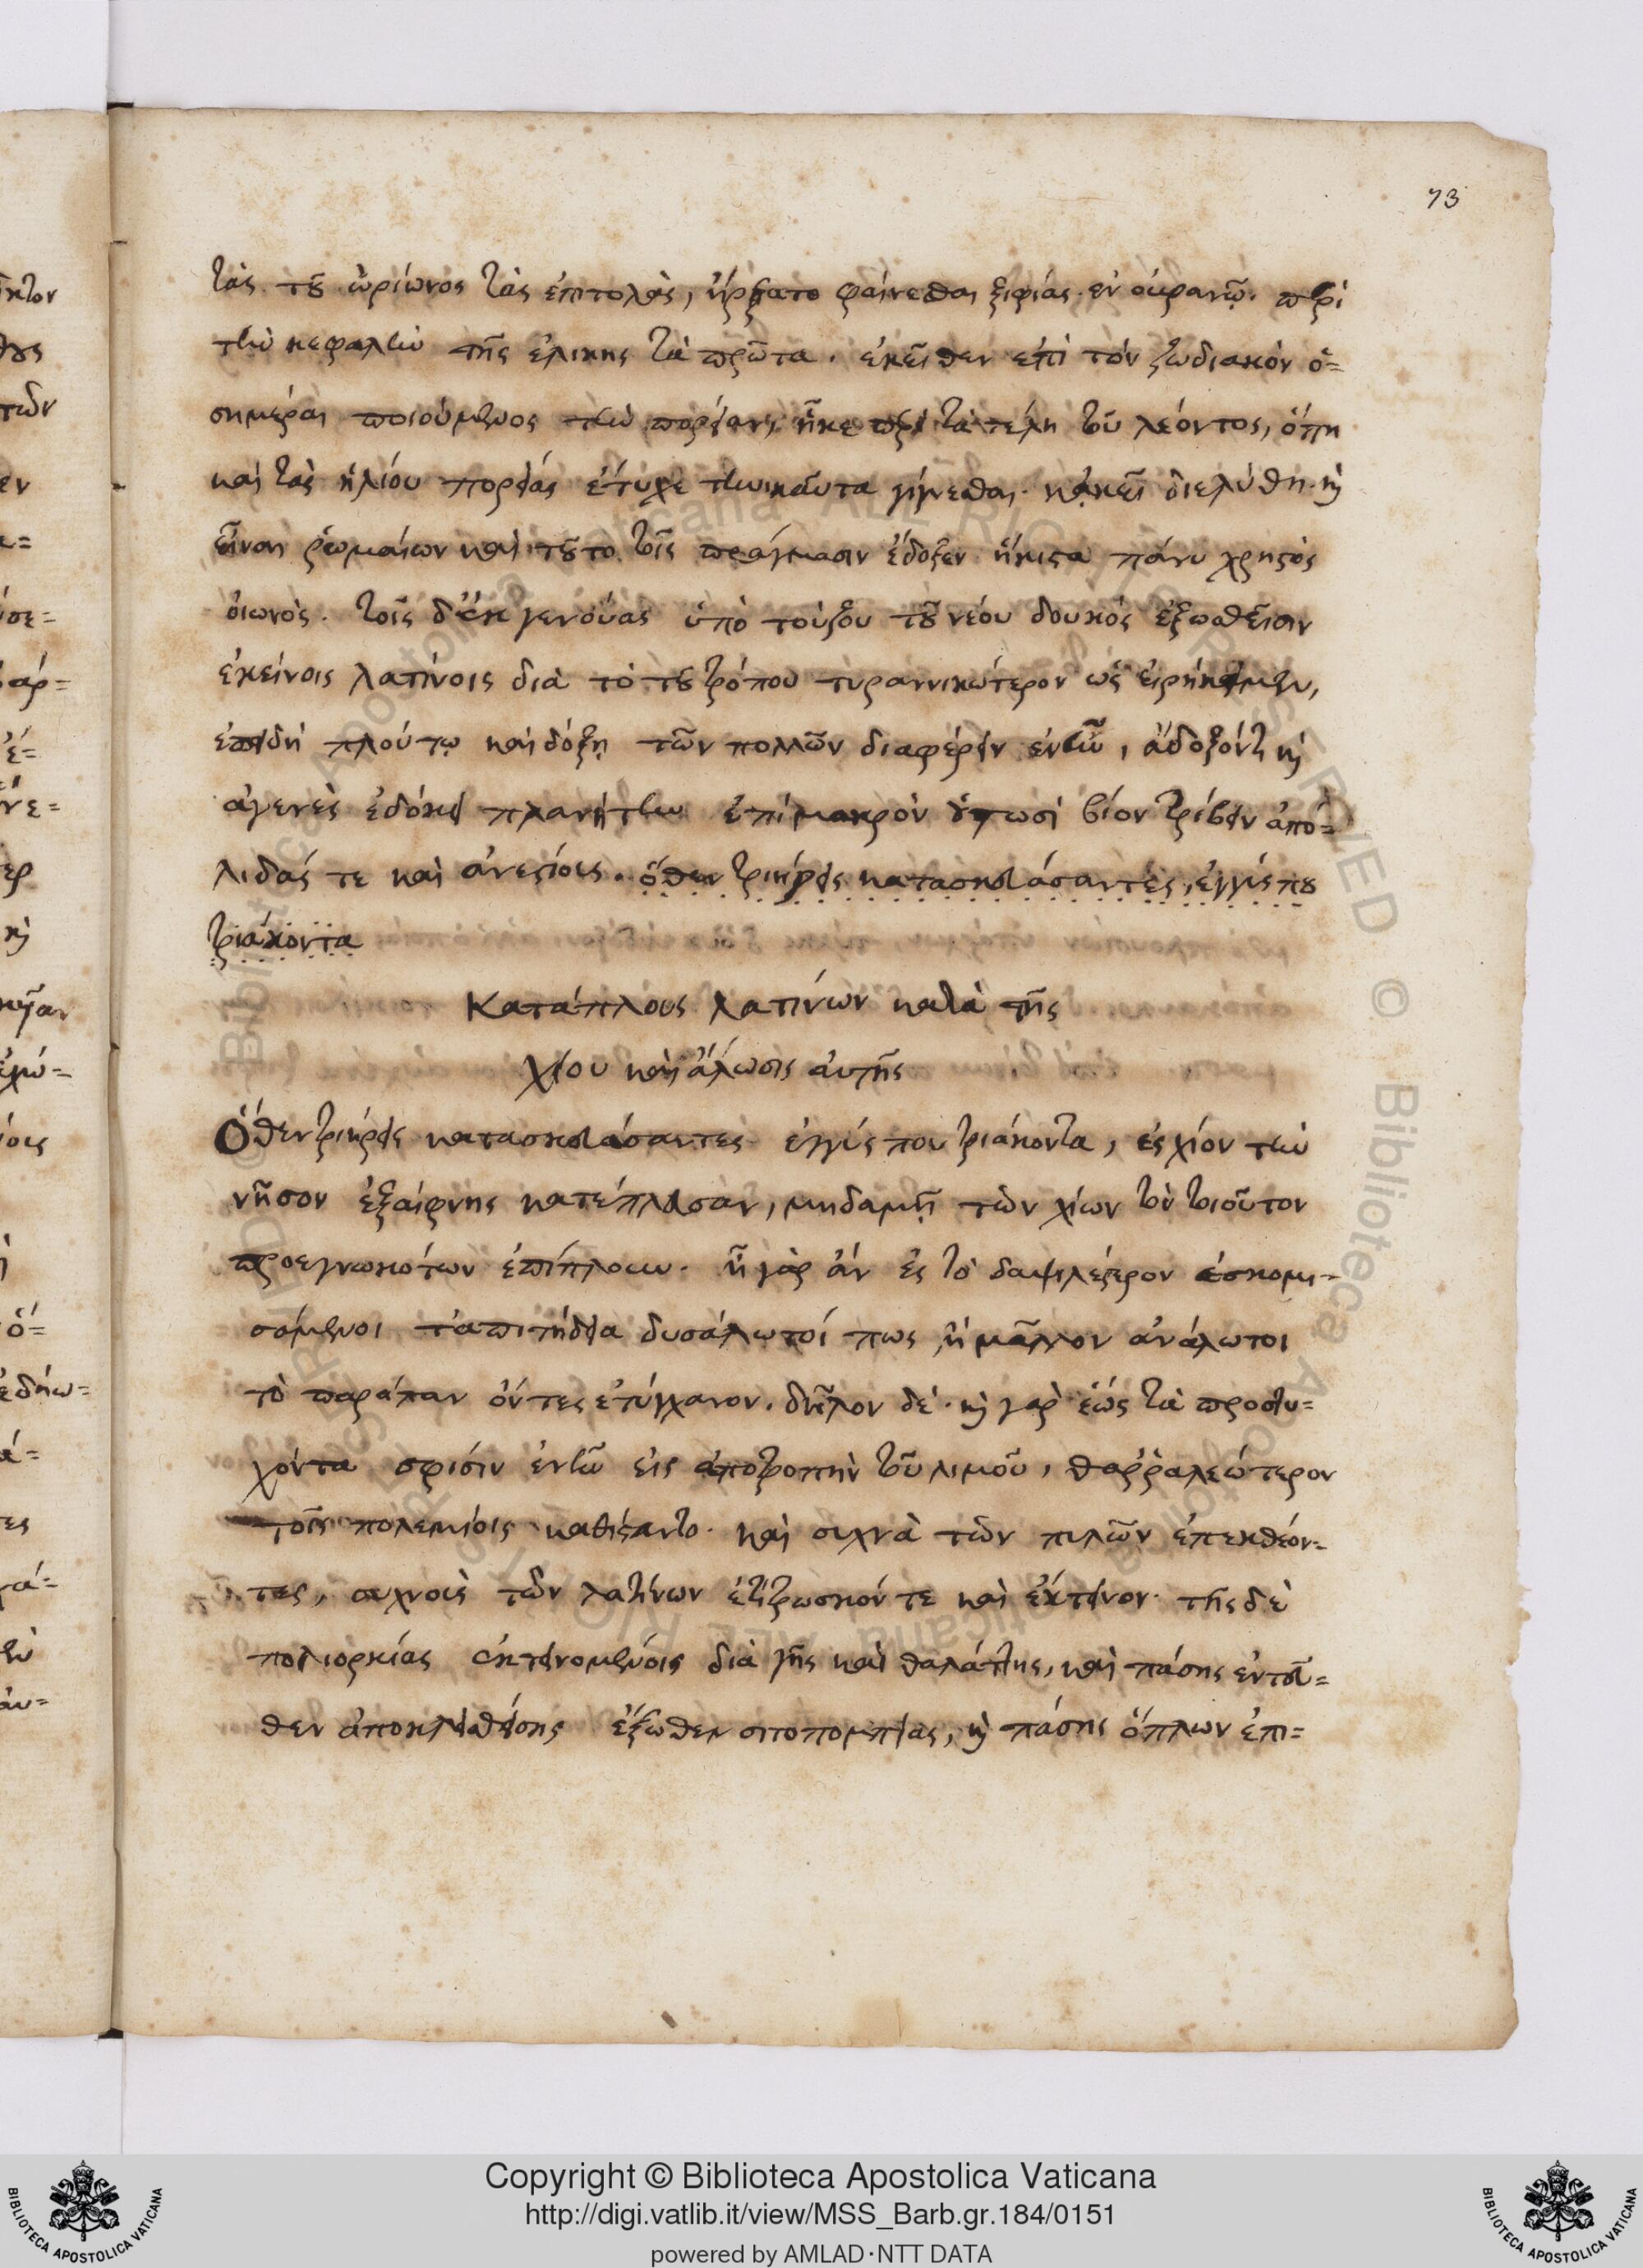 73
τὰς τοῦ ὠρίωνος τὰς ἐπιτολὰς, ἤρξατο φαίνεσθαι ξιφίας ἐν οὐρανῷ. περὶ
τὴν κεφαλὴν τῆς ἑλίκης τὰ πρῶτα. ἐκεῖθεν ἐπὶ τὸν ζωδιακὸν ὁ=
σημέραι ποιούμενος τὴν πορείαν, ἧκε περὶ τὰ τέλη τοῦ λέοντος, ὅπη
καὶ τὰς ἡλίου πορείας ἐτύχε τηνικαῦτα γίγνεσθαι. κἀκεῖ διελύθη. καὶ
εἶναι ῥωμαίων καὶ τοῦτο τοῖς πράγμασιν ἔδοξεν ἥκιστα πάνυ χρηστὸς
οἰωνὸς. τοῖς δ' ἐκ γενούας ὑπὸ τούζου τοῦ νέου δουκὸς ἐξωσθεῖσιν
ἐκείνοις λατίνοις διὰ τὸ τοῦ τρόπου τυραννικώτερον ὡς εἰρήκειμεν,
ἐπειδὴ πλούτῳ καὶ δόξῃ τῶν πολλῶν διαφέρειν ἐνῆν, ἄδοξόν τι καὶ
ἀγενὲς ἐδόκει πλανήτην ἐπὶ μακρὸν οὑτωσὶ βίον τρίβειν ἀπό=
λιδάς τε καὶ ἀνεστίοις. ὅθεν τριήρεις κατασκευάσαντες, ἐγγύς που
τριάκοντα
Κατάπλους λατίνων κατὰ τῆς
χίου καὶ ἅλωσις αὐτῆς
Ὅθεν τριήρεις κατασκευάσαντες ἐγγύς που τριάκοντα, ἐς χίον τὴν
νῆσον ἐξαίφνης κατέπλευσαν, μηδαμῇ τῶν χίων τὸν τοιοῦτον
προεγνωκότων ἐπίπλουν. ἦ γὰρ ἂν ἐς τὸ δαψιλέστερον ἐσκομι-
σάμενοι τἀπιτήδεια δυσάλωτοί πως, ἢ μᾶλλον ἀνάλωτοι
τὸ παράπαν ὄντες ἐτύγχανον. δῆλον δέ. καὶ γὰρ ἕως τὰ προστυ=
χόντα σφίσιν ἐνῆν εἰς ἀποτροπὴν τοῦ λιμοῦ, θαῤῥαλεώτερον
τοῖς πολεμίοις καθίσταντο. καὶ συχνὰ τῶν πυλῶν ἐπεκθέον=
τες, συχνοὺς τῶν λατίνων ἐτίτρωσκόν τε καὶ ἔκτεινον. τῆς δὲ
πολιορκίας ἐκτεινομένοις διὰ γῆς καὶ θαλάττης, καὶ πάσης ἐντεῦ=
θεν ἀποκλεισθείσης ἔξωθεν σιτοπομπείας, καὶ πάσης ὅπλων ἐπι=
Copyright © Biblioteca Apostolica Vaticana
http://digi.vatlib.it/view/MSS_Barb.gr.184/0151
powered by AMLAD·NTT DATA
BIBLIOTECA APOSTOLICA VATICANA
BIBLIOTECA APOSTOLICA VATICANA